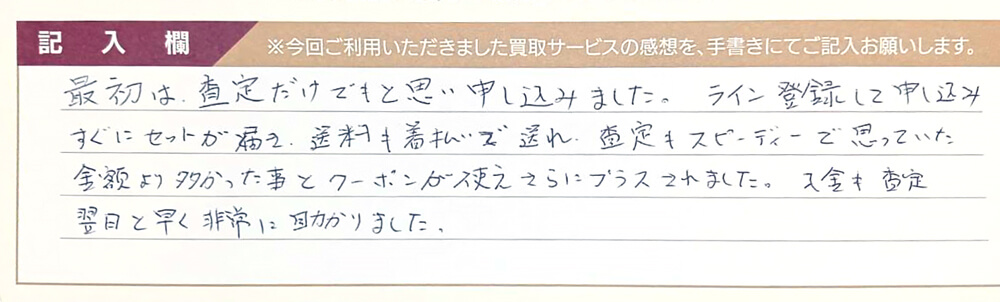 記入欄 ※今回ご利用いただきました買取サービスの感想を、手書きにてご記入お願いします。
最初は、査定だけでもと思い申し込みました。 ライン登録して申し込み
すぐにセットが届き、送料も着払いで送れ、査定もスピーディーで思っていた
金額より多かった事とクーポンが使えさらにプラスされました。入金も査定
翌日と早く非常に助かりました。